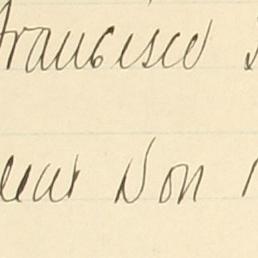 Francisco
dear Don